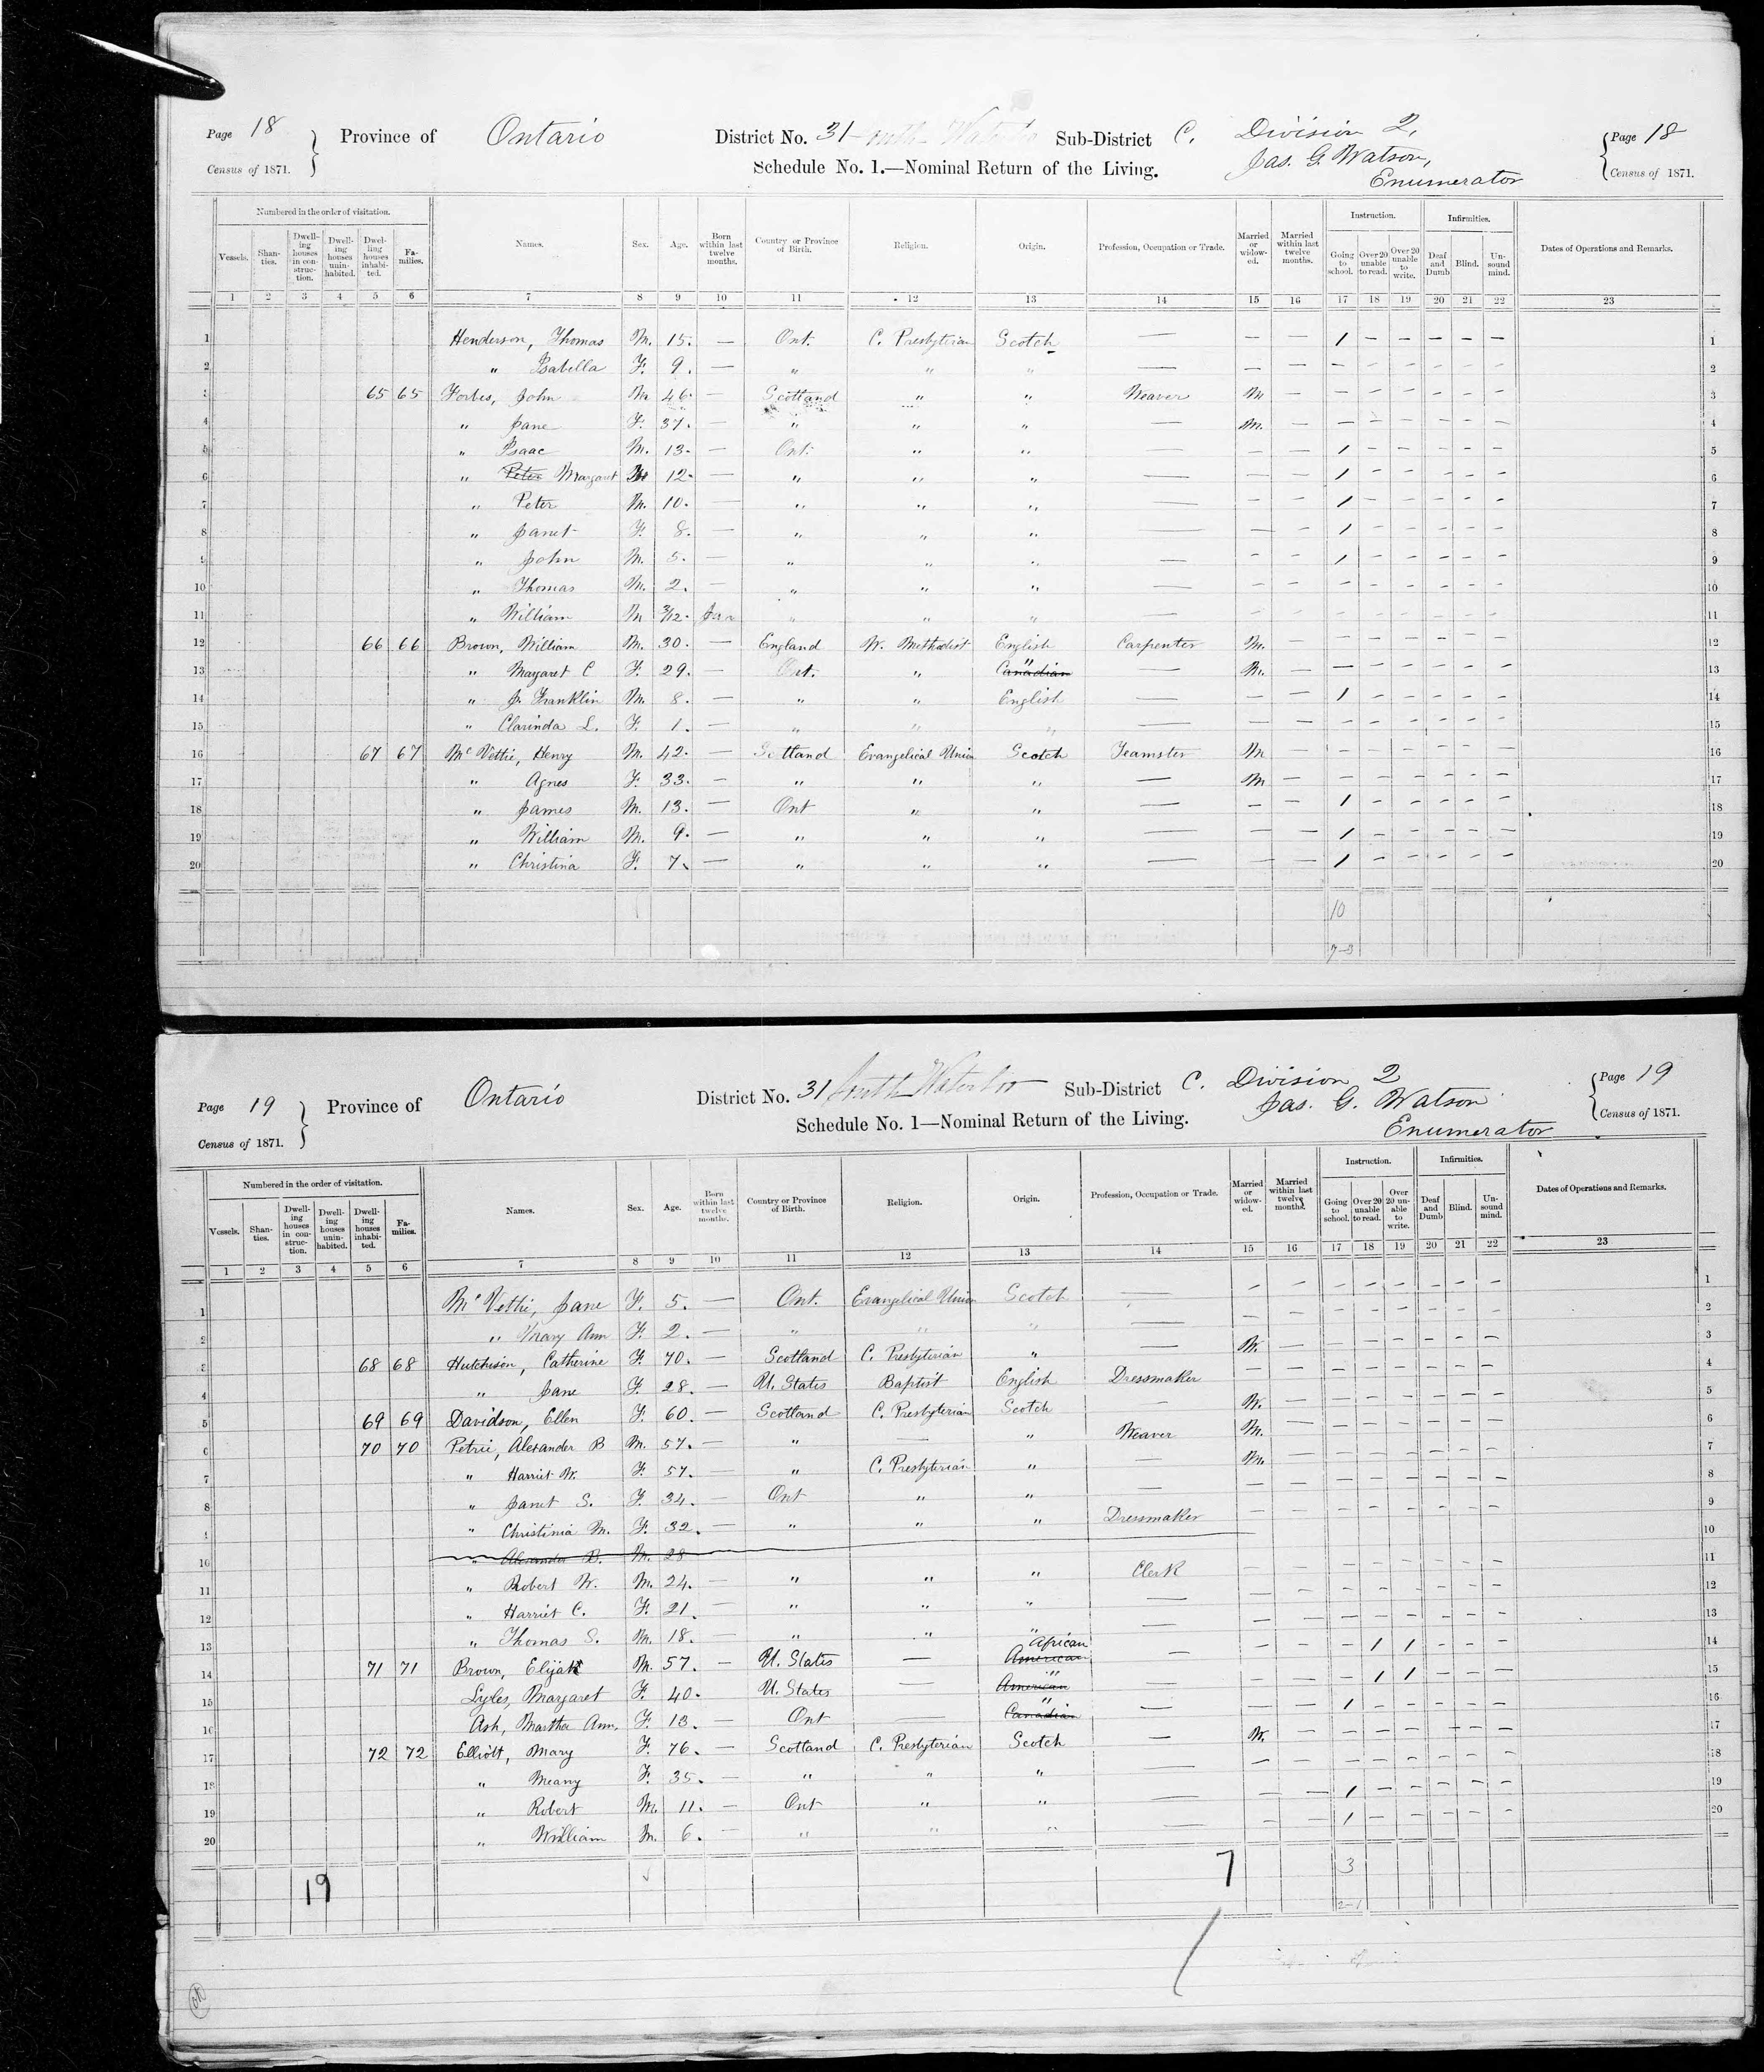 Page 18 Province of Ontario District No. 31 South Waterloo Sub-District C. Division 2, Page 18
Census of 1871. Schedule No. 1.—Nominal Return of the Living. Jas. G. Watson, Census of 1871.
Enumerator
Numbered in the order of visitation. Instruction. Infirmities.
Vessels. Shanties. Dwelling houses in construction. Dwelling houses uninhabited. Dwelling houses inhabited. Families. Names. Sex. Age. Born within last twelve months. Country or Province of Birth. Religion. Origin. Profession, Occupation or Trade. Married or widowed. Married within last twelve months. Going to school. Over 20 unable to read. Over 20 unable to write. Deaf and Dumb Blind. Unsound mind. Dates of Operations and Remarks.
1 2 3 4 5 6 7 8 9 10 11 12 13 14 15 16 17 18 19 20 21 22 23
1 Henderson, Thomas M. 15. — Ont. C. Presbyterian Scotch — — — 1 — — — — — 1
2 " Isabella F. 9. — " " " — — — - - - - - - 2
3 65 65 Forbes, John M 46. — Scotland " " Weaver M — - - - - - - 3
4 " Jane F. 37. — " " " — M. — - - - - - - 4
5 " Isaac M. 13. — Ont. " " — — — 1 - - - - - 5
6 " Peter Margaret M 12. — " " " — — — 1 - - - - - 6
7 " Peter M. 10. — " " " — — — 1 - - - - - 7
8 " Janet F. 8. — " " " — — — 1 - - - - - 8
9 " John M. 5. — " " " — — — 1 - - - - - 9
10 " Thomas M. 2. — " " " — — — - - - - - - 10
11 " William M 3/12. Jan " " " — — — - - - - - - 11
12 66 66 Brown, William M. 30. — England W. Methodist English Carpenter M. — - - - - - - 12
13 " Margaret C F. 29. — Ont. " Canadian " — M. — - - - - - - 13
14 " J. Franklin M. 8. — " " English — — — 1 - - - - - 14
15 " Clarinda L. F. 1. — " " " — — — - - - - - - 15
16 67 67 McVettie, Henry M. 42. — Scotland Evangelical Union Scotch Teamster M — - - - - - - 16
17 " Agnes F. 33. — " " " — M — - - - - - - 17
18 " James M. 13. — Ont " " — — — 1 - - - - - 18
19 " William M. 9. — " " " — — — 1 - - - - - 19
20 " Christina F. 7. — " " " — — — 1 - - - - - 20
10
7-3
Page 19 Province of Ontario District No. 31 South Waterloo Sub-District C. Division 2 Page 19
Census of 1871. Schedule No. 1—Nominal Return of the Living. Jas. G. Watson Census of 1871.
Enumerator
Numbered in the order of visitation. Instruction. Infirmities.
Vessels. Shanties. Dwelling houses in construction. Dwelling houses uninhabited. Dwelling houses inhabited. Families. Names. Sex. Age. Born within last twelve months. Country or Province of Birth. Religion. Origin. Profession, Occupation or Trade. Married or widowed. Married within last twelve months. Going to school. Over 20 unable to read. Over 20 unable to write. Deaf and Dumb Blind. Unsound mind. Dates of Operations and Remarks.
1 2 3 4 5 6 7 8 9 10 11 12 13 14 15 16 17 18 19 20 21 22 23
1 McVettie, Jane F. 5. — Ont. Evangelical Union Scotch — — — - - - - - - 1
2 " Mary Ann F. 2. — " " " — — — - - - - - - 2
3 68 68 Hutchison, Catherine F. 70. — Scotland C. Presbyterian " — W. — - - - - - 3
4 " Jane F. 28. — U. States Baptist English Dressmaker — — - - - - - - 4
5 69 69 Davidson, Ellen F. 60. — Scotland C. Presbyterian Scotch — W. — - - - - - - 5
6 70 70 Petrie, Alexander B M. 57. — " — " Weaver M. — - - - - - - 6
7 " Harriet W. F. 57. — " C. Presbyterian " — M. — - - - - - - 7
8 " Janet S. F. 34. — Ont " " — — — - - - - - - 8
9 " Christinia M. F. 32. — " " " Dressmaker — — - - - - - - 9
10 " Alexander B. M. 28 10
11 " Robert W. M. 24. — " " " Clerk — — - - - - - - 11
12 " Harriet C. F. 21. — " " " — — — - - - - - - 12
13 " Thomas S. M. 18. — " " " — — — - - - - - - 13
14 71 71 Brown, Elijah M. 57. — U. States — American African — — — - 1 1 - - - 14
15 Lyles, Margaret F. 40. U. States — American " — — — - 1 1 - - - 15
16 Ash, Martha Ann. F. 13. — Ont — Canadian " — — — 1 - - - - - 16
17 72 72 Elliott, Mary F. 76. — Scotland C. Presbyterian Scotch — W. — - - - - - - 17
18 " Meany F. 35. — " " " — — — - - - - - - 18
19 " Robert M. 11. — Ont " " — — — 1 - - - - - 19
20 " William M. 6. — " " " — — — 1 - - - - - 20
19 7 3
2-1